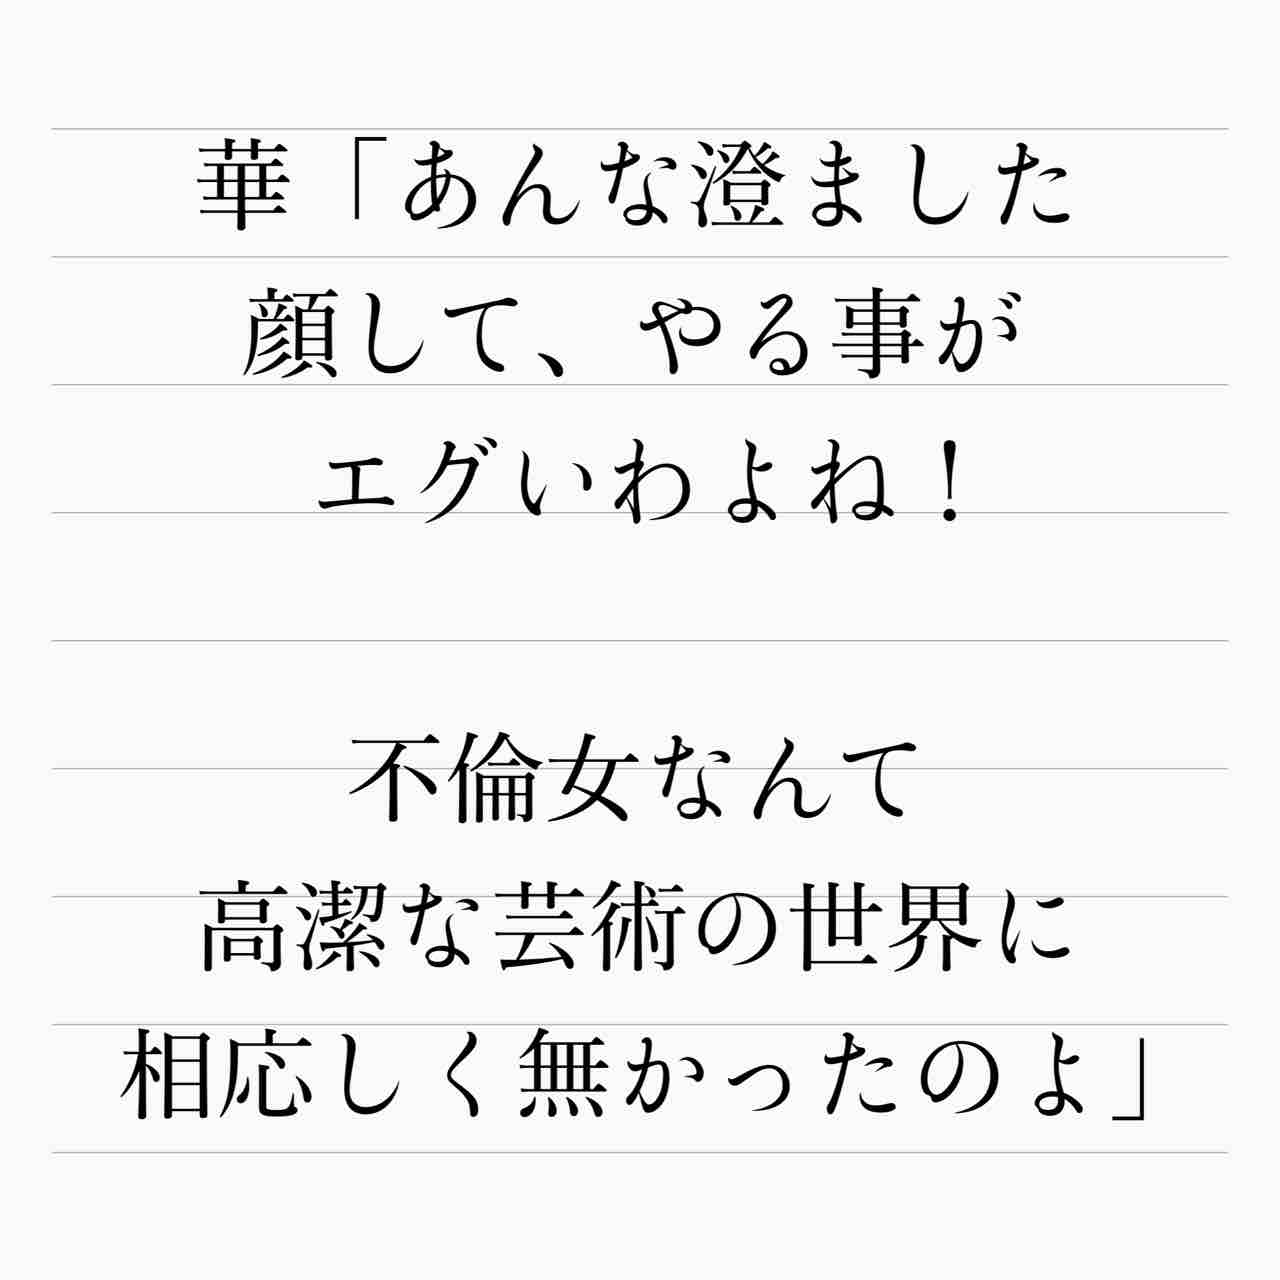 華「あんな澄ました
顔して、やる事が
エグいわよね！
不倫女なんて
高潔な芸術の世界に
相応しく無かったのよ」